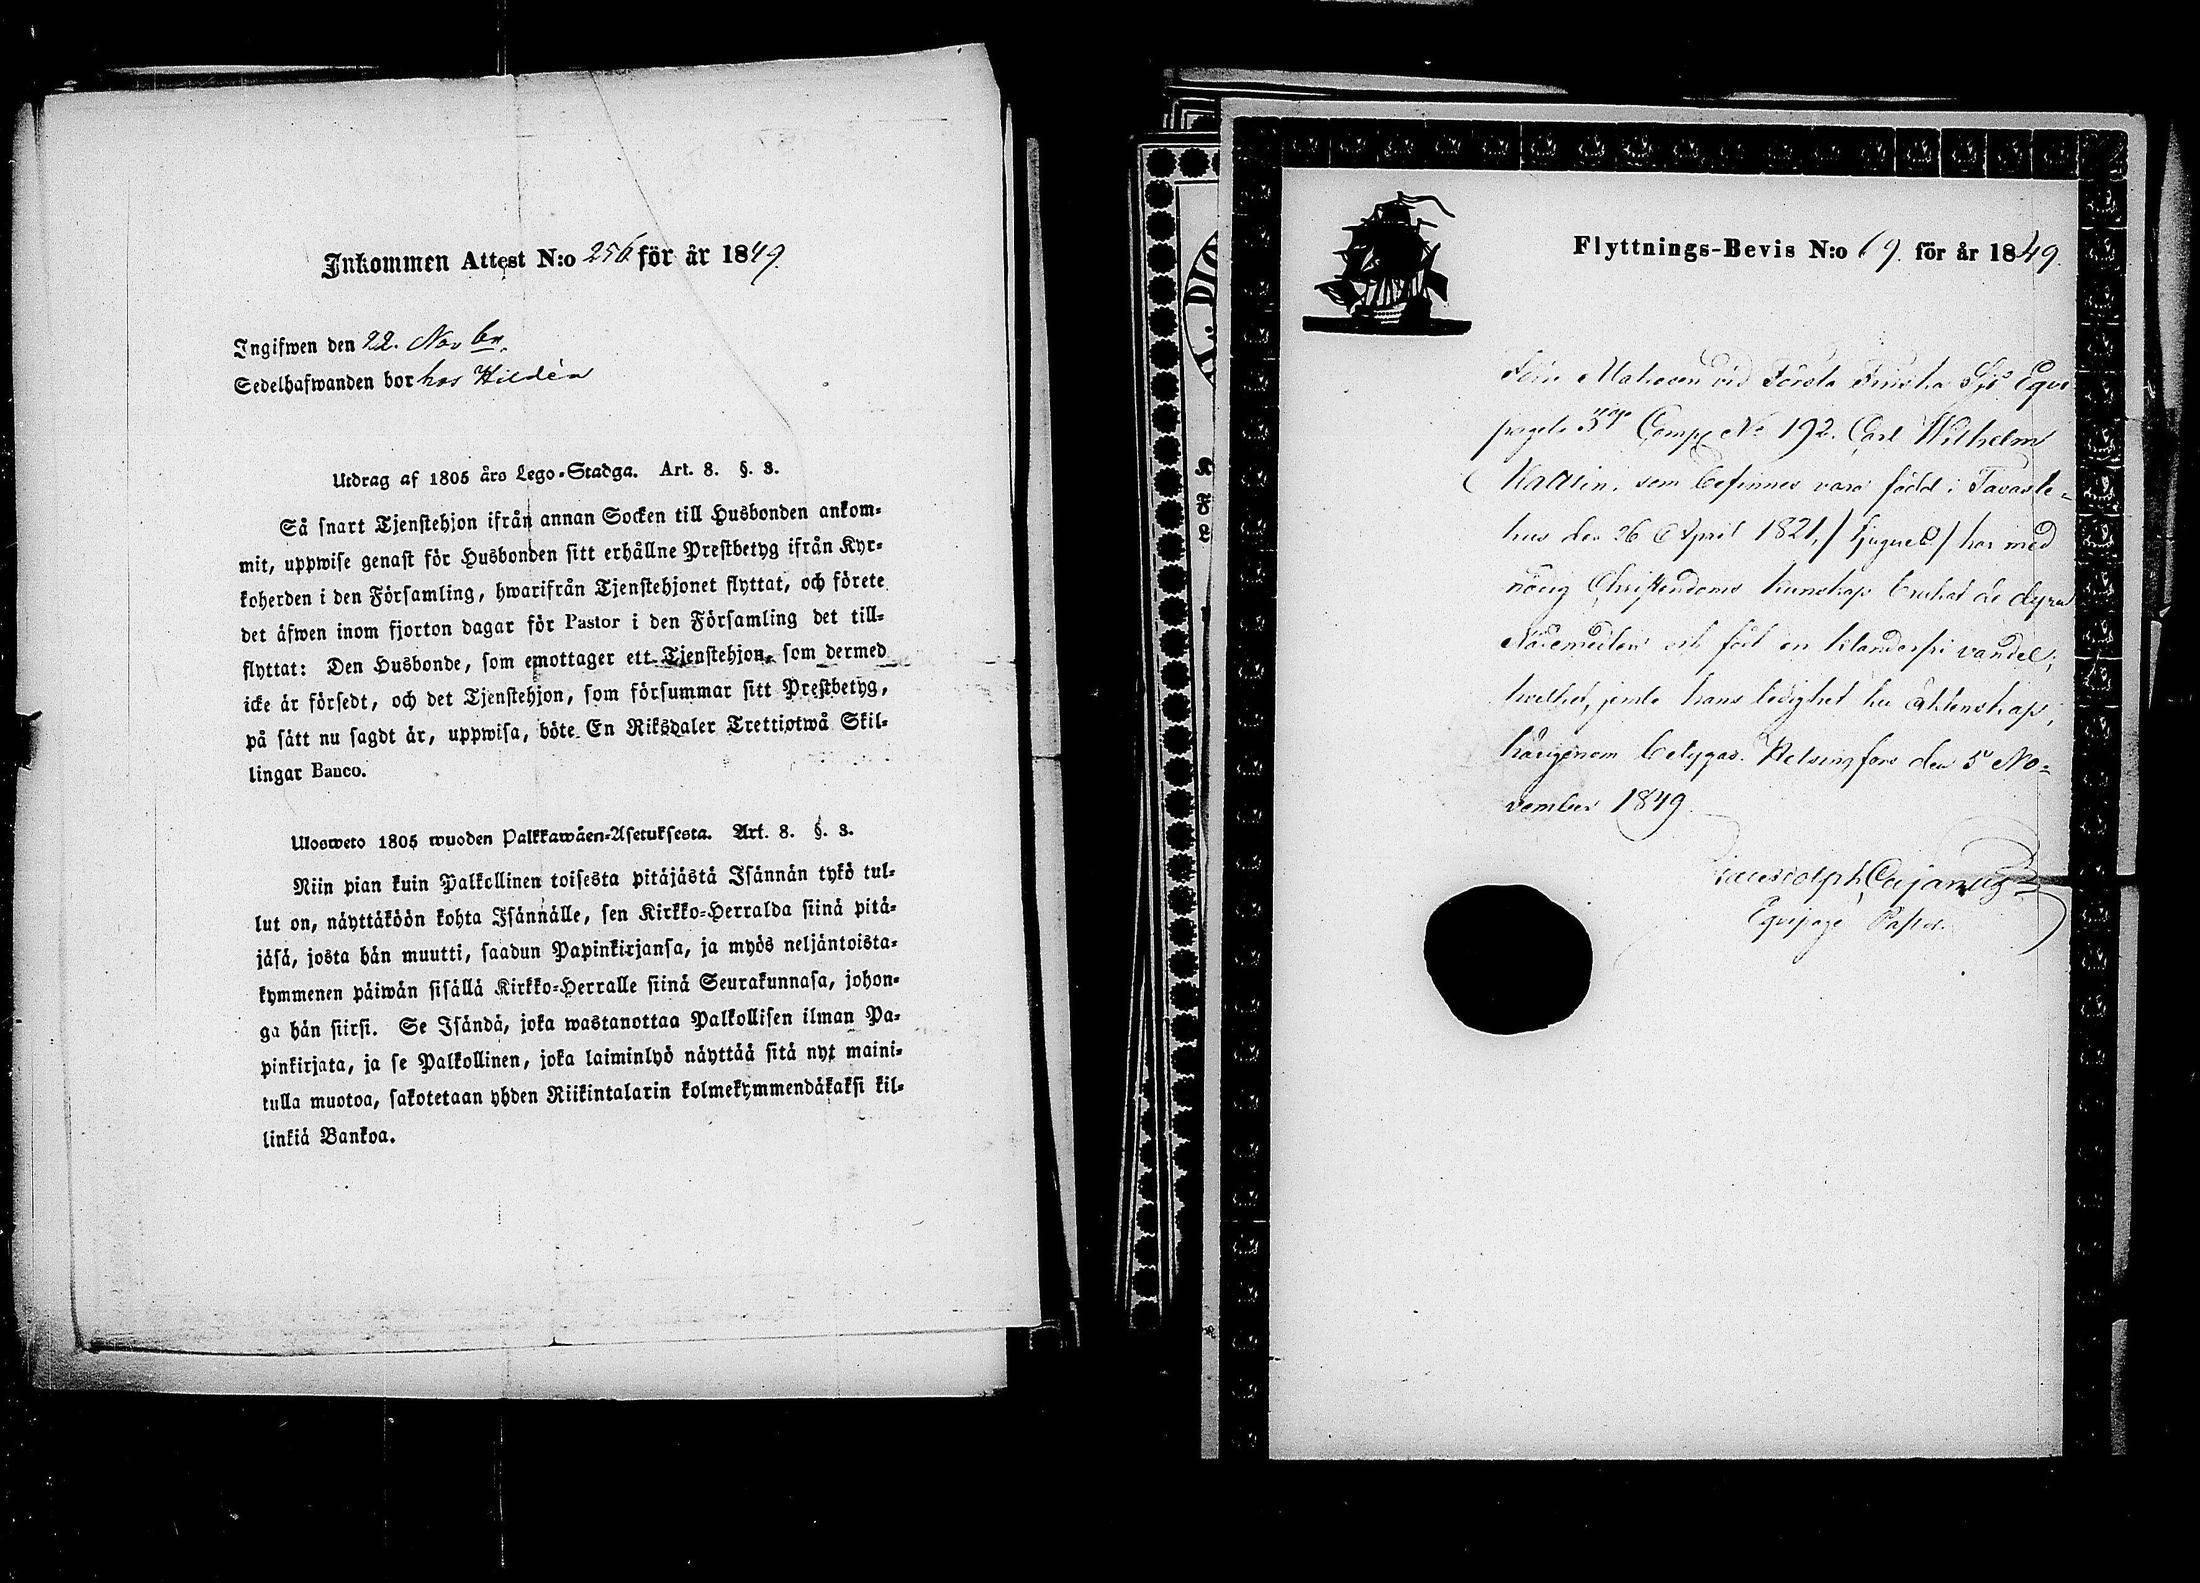 Inkommen Attest N:o 256 för år 1849.
Ingifwen den 22. Novbr.
Sedelhafwanden bor hos Hildén
Utdrag af 1805 års Lego-Stadga. Art. 8. §. 3.
Så snart Tjenstehjon ifrån annan Socken till Husbonden ankom-
mit, uppwise genast för Husbonden sitt erhållne Prestbetyg ifrån Kyr-
koherden i den Församling, hwarifrån Tjenstehjonet flyttat, och förete
det äfwen inom fjorton dagar för Pastor i den Församling det till-
flyttat: Den Husbonde, som emottager ett Tjenstehjon, som dermed
icke är försedt, och det Tjenstehjon, som försummar sitt Prestbetyg,
på sätt nu sagdt är, uppwisa, böte En Riksdaler Trettiotwå Skil-
lingar Banco.
Ulosweto 1805 wuoden Palkkawäen-Asetuksesta. Art. 8. §. 3.
Niin pian kuin Palkollinen toisesta pitäjästä Isännän tykö tul-
lut on, näyttäköön kohta Isännälle, sen Kirkko-Herralda siinä pitä-
jäsä, josta hän muutti, saadun Papinkirjansa, ja myös neljäntoista-
kymmenen päiwän sisällä Kirkko-Herralle siinä Seurakunnasa, johon-
ga hän siirsi. Se Isändä, joka wastanottaa Palkollisen ilman Pa-
pinkirjata, ja se Palkollinen, joka laiminlyö näyttää sitä nyt maini-
tulla muotoa, sakotetaan yhden Riikintalarin kolmekymmendäkaksi kil-
linkiä Bankoa.
Flyttnings-Bevis N:o 69. för år 1849.
Matrosen vid Första Finska Sjö Equi
pagets Comp. No 192. Carl Wilhelm
Kattlin, som befinnes vara född i Tavaste-
hus den 26 April 1821, har med
nöjig Christendoms kunskap brukat de dyra
Nådemedlen och fört en klanderfri vandel;
hvilket, jemte hans ledighet till äktenskap,
härigenom betygas. Helsingfors den 5 No-
vember 1849.
Cajanus
Equipage Pastor.